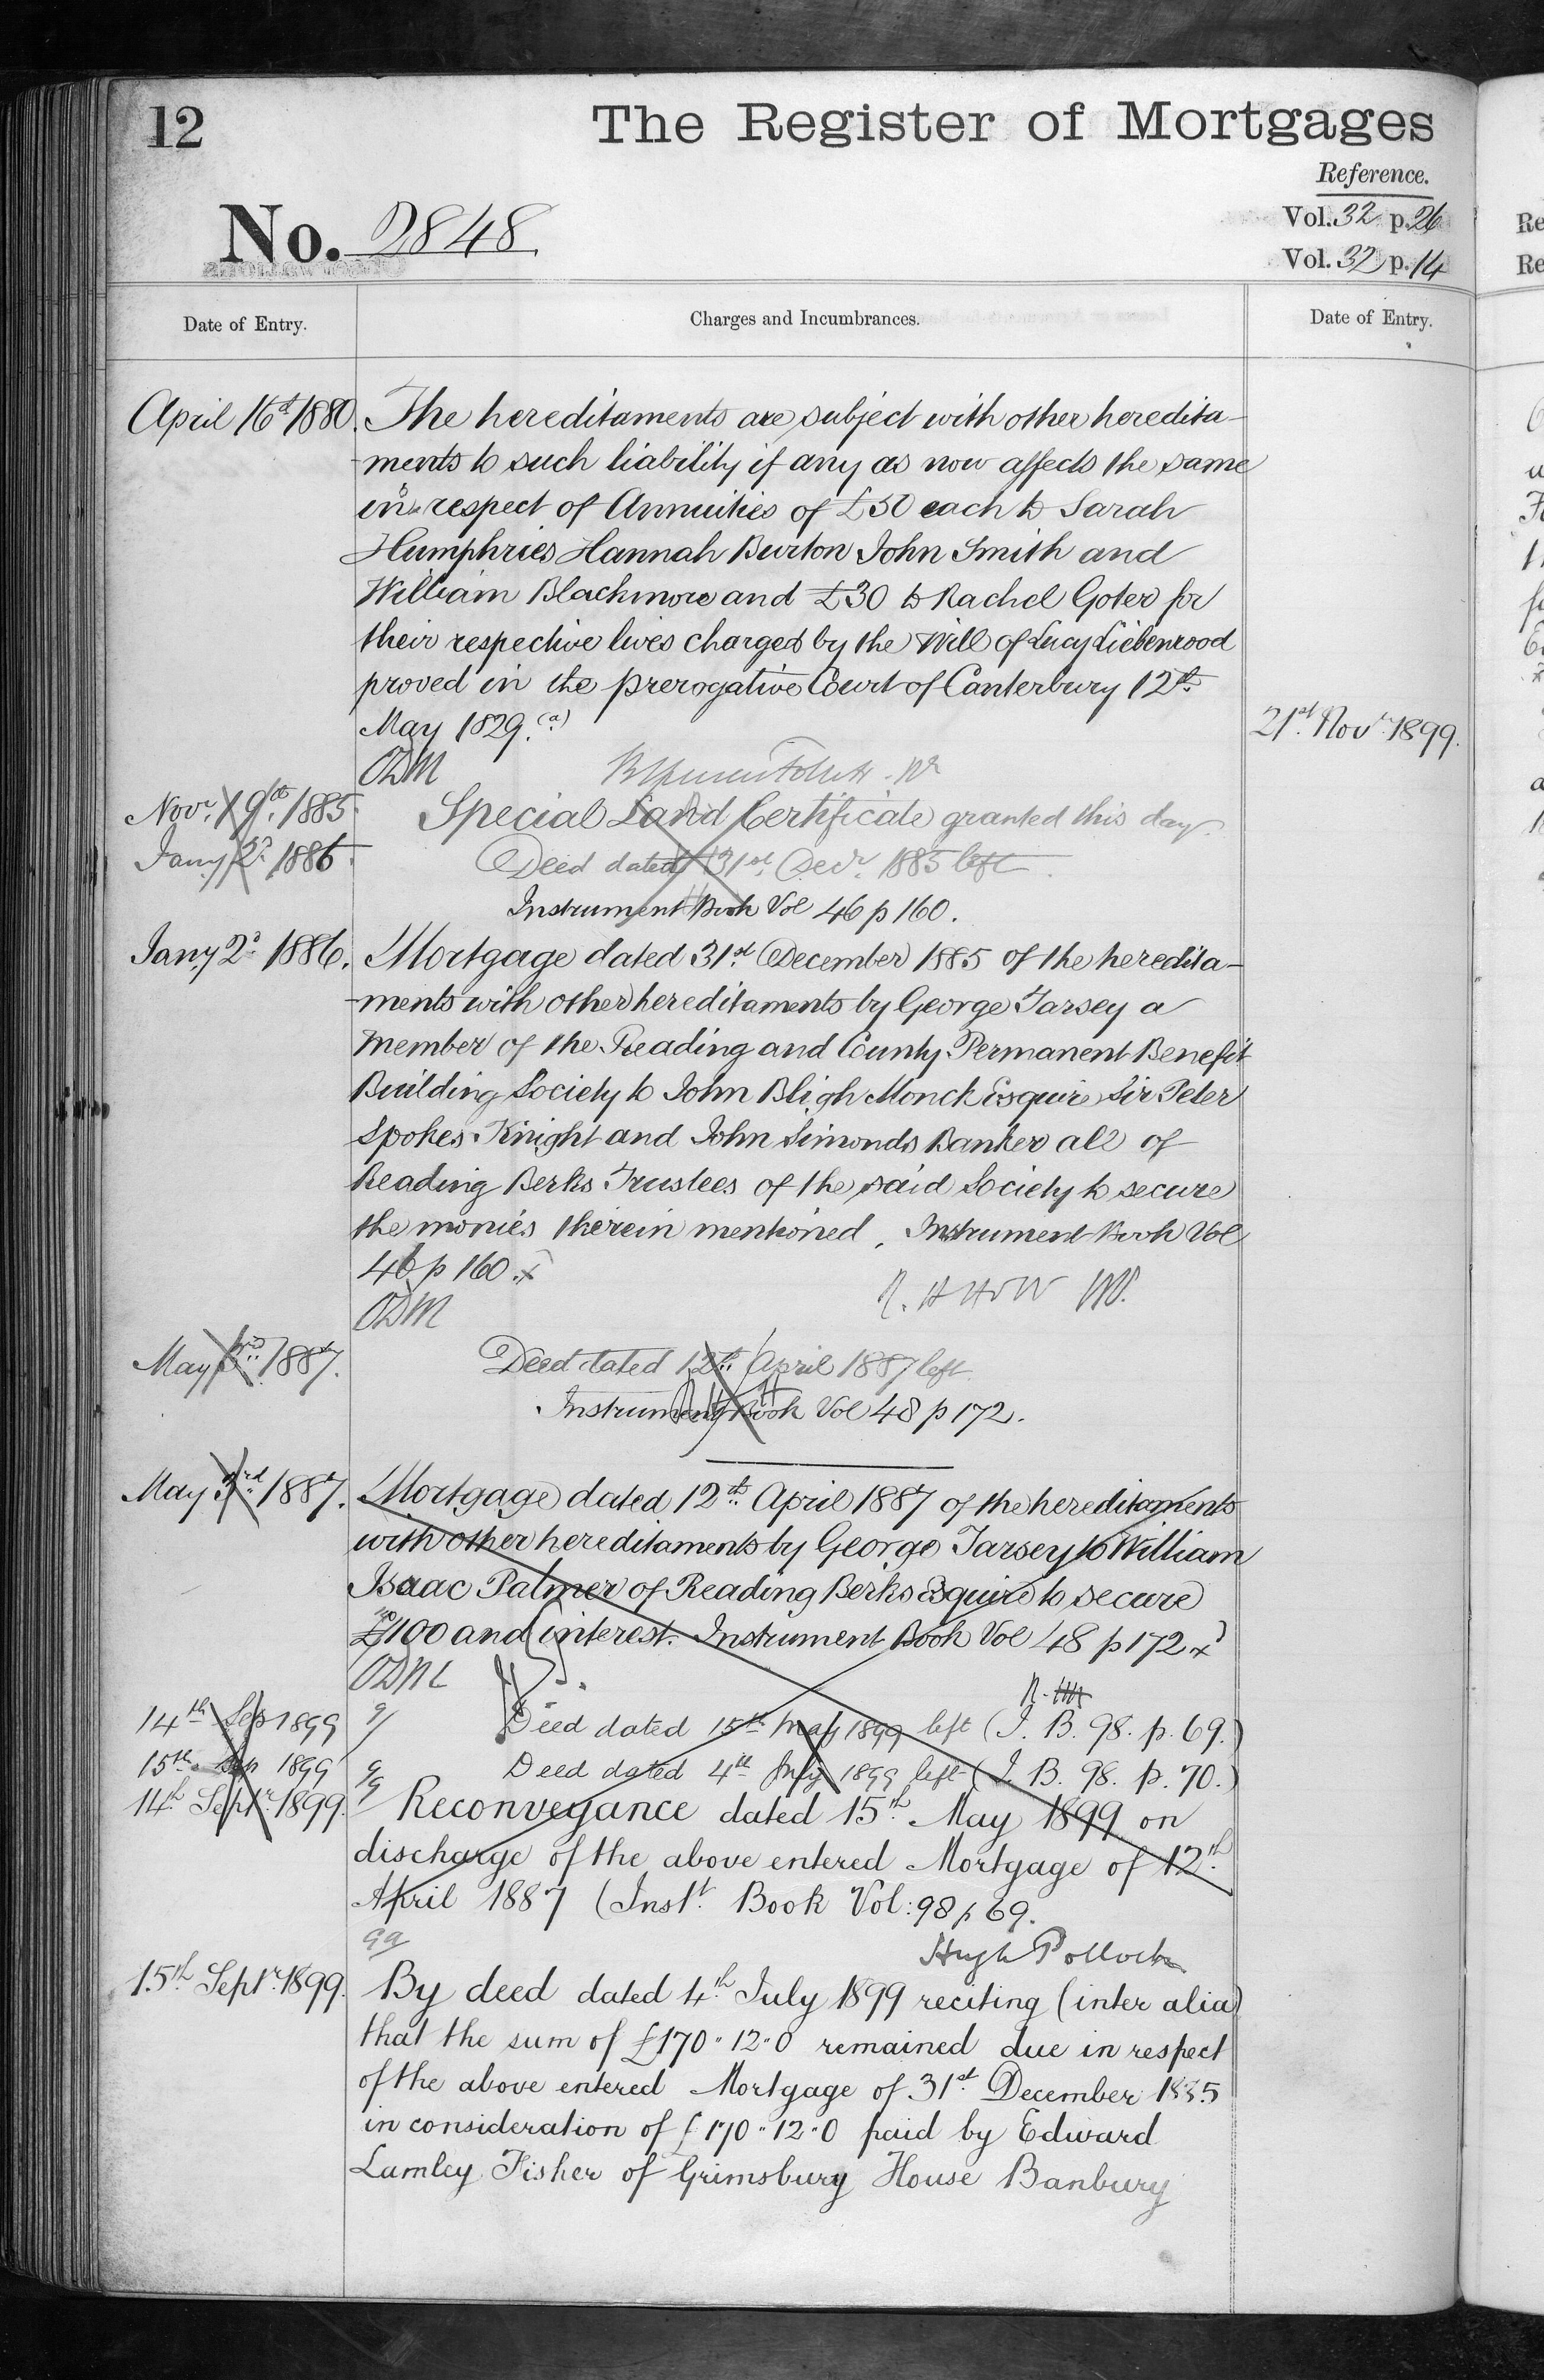 12
The Register of Mortgages
Reference.
No. 2848
Vol. 32 p. 26
Vol. 32 p. 14
Date of Entry.
Charges and Incumbrances.
Date of Entry.
April 16th 1880. The hereditaments are subject with other heredita-
-ments to such liability if any as now affects the same
in respect of Annuities of £50 each to Sarah
Humphries Hannah Burton John Smith and
William Blackmore and £30 to Rachel Goter for
their respective lives charged by the Will of Lucy Liebenrood
proved in the prerogative Court of Canterbury 12th
May 1829. (a)
21st Novr 1899.
ODM
Novr 19th 1885. Special Land Certificate granted this day.
Jany 2d 1886. Deed dated 31st Decr 1885 left.
Instrument Book Vol 46 p 160.
Jany 2d 1886. Mortgage dated 31st December 1885 of the heredita-
-ments with other hereditaments by George Tarsey a
Member of the Reading and County Permanent Benefit
Building Society to John Bligh Monck Esquire Sir Peter
Spokes Knight and John Simonds Banker all of
Reading Berks Trustees of the said Society to secure
the monies therein mentioned. Instrument Book Vol
46 p 160. x
ODM
May 3rd 1887. Deed dated 12th April 1887 left.
Instrument Book Vol 48 p 172.
May 3rd 1887. Mortgage dated 12th April 1887 of the hereditaments
with other hereditaments by George Tarsey to William
Isaac Palmer of Reading Berks Esquire to secure
£1100 and interest. Instrument Book Vol 48 p 172 x
ODM
14th Sep 1899 Deed dated 15th May 1899 left (I. B. 98. p. 69.)
15th Sep 1899 Deed dated 4th July 1899 left (I. B. 98. p. 70.)
14th Septr 1899. Reconveyance dated 15th May 1899 on
discharge of the above entered Mortgage of 12th
April 1887 (Inst. Book Vol: 98 p 69.
Hugh Pollock
15th Septr 1899. By deed dated 4th July 1899 reciting (inter alia)
that the sum of £170 " 12 " 0 remained due in respect
of the above entered Mortgage of 31st December 1885
in consideration of £170 " 12 " 0 paid by Edward
Lamley Fisher of Grimsbury House Banbury